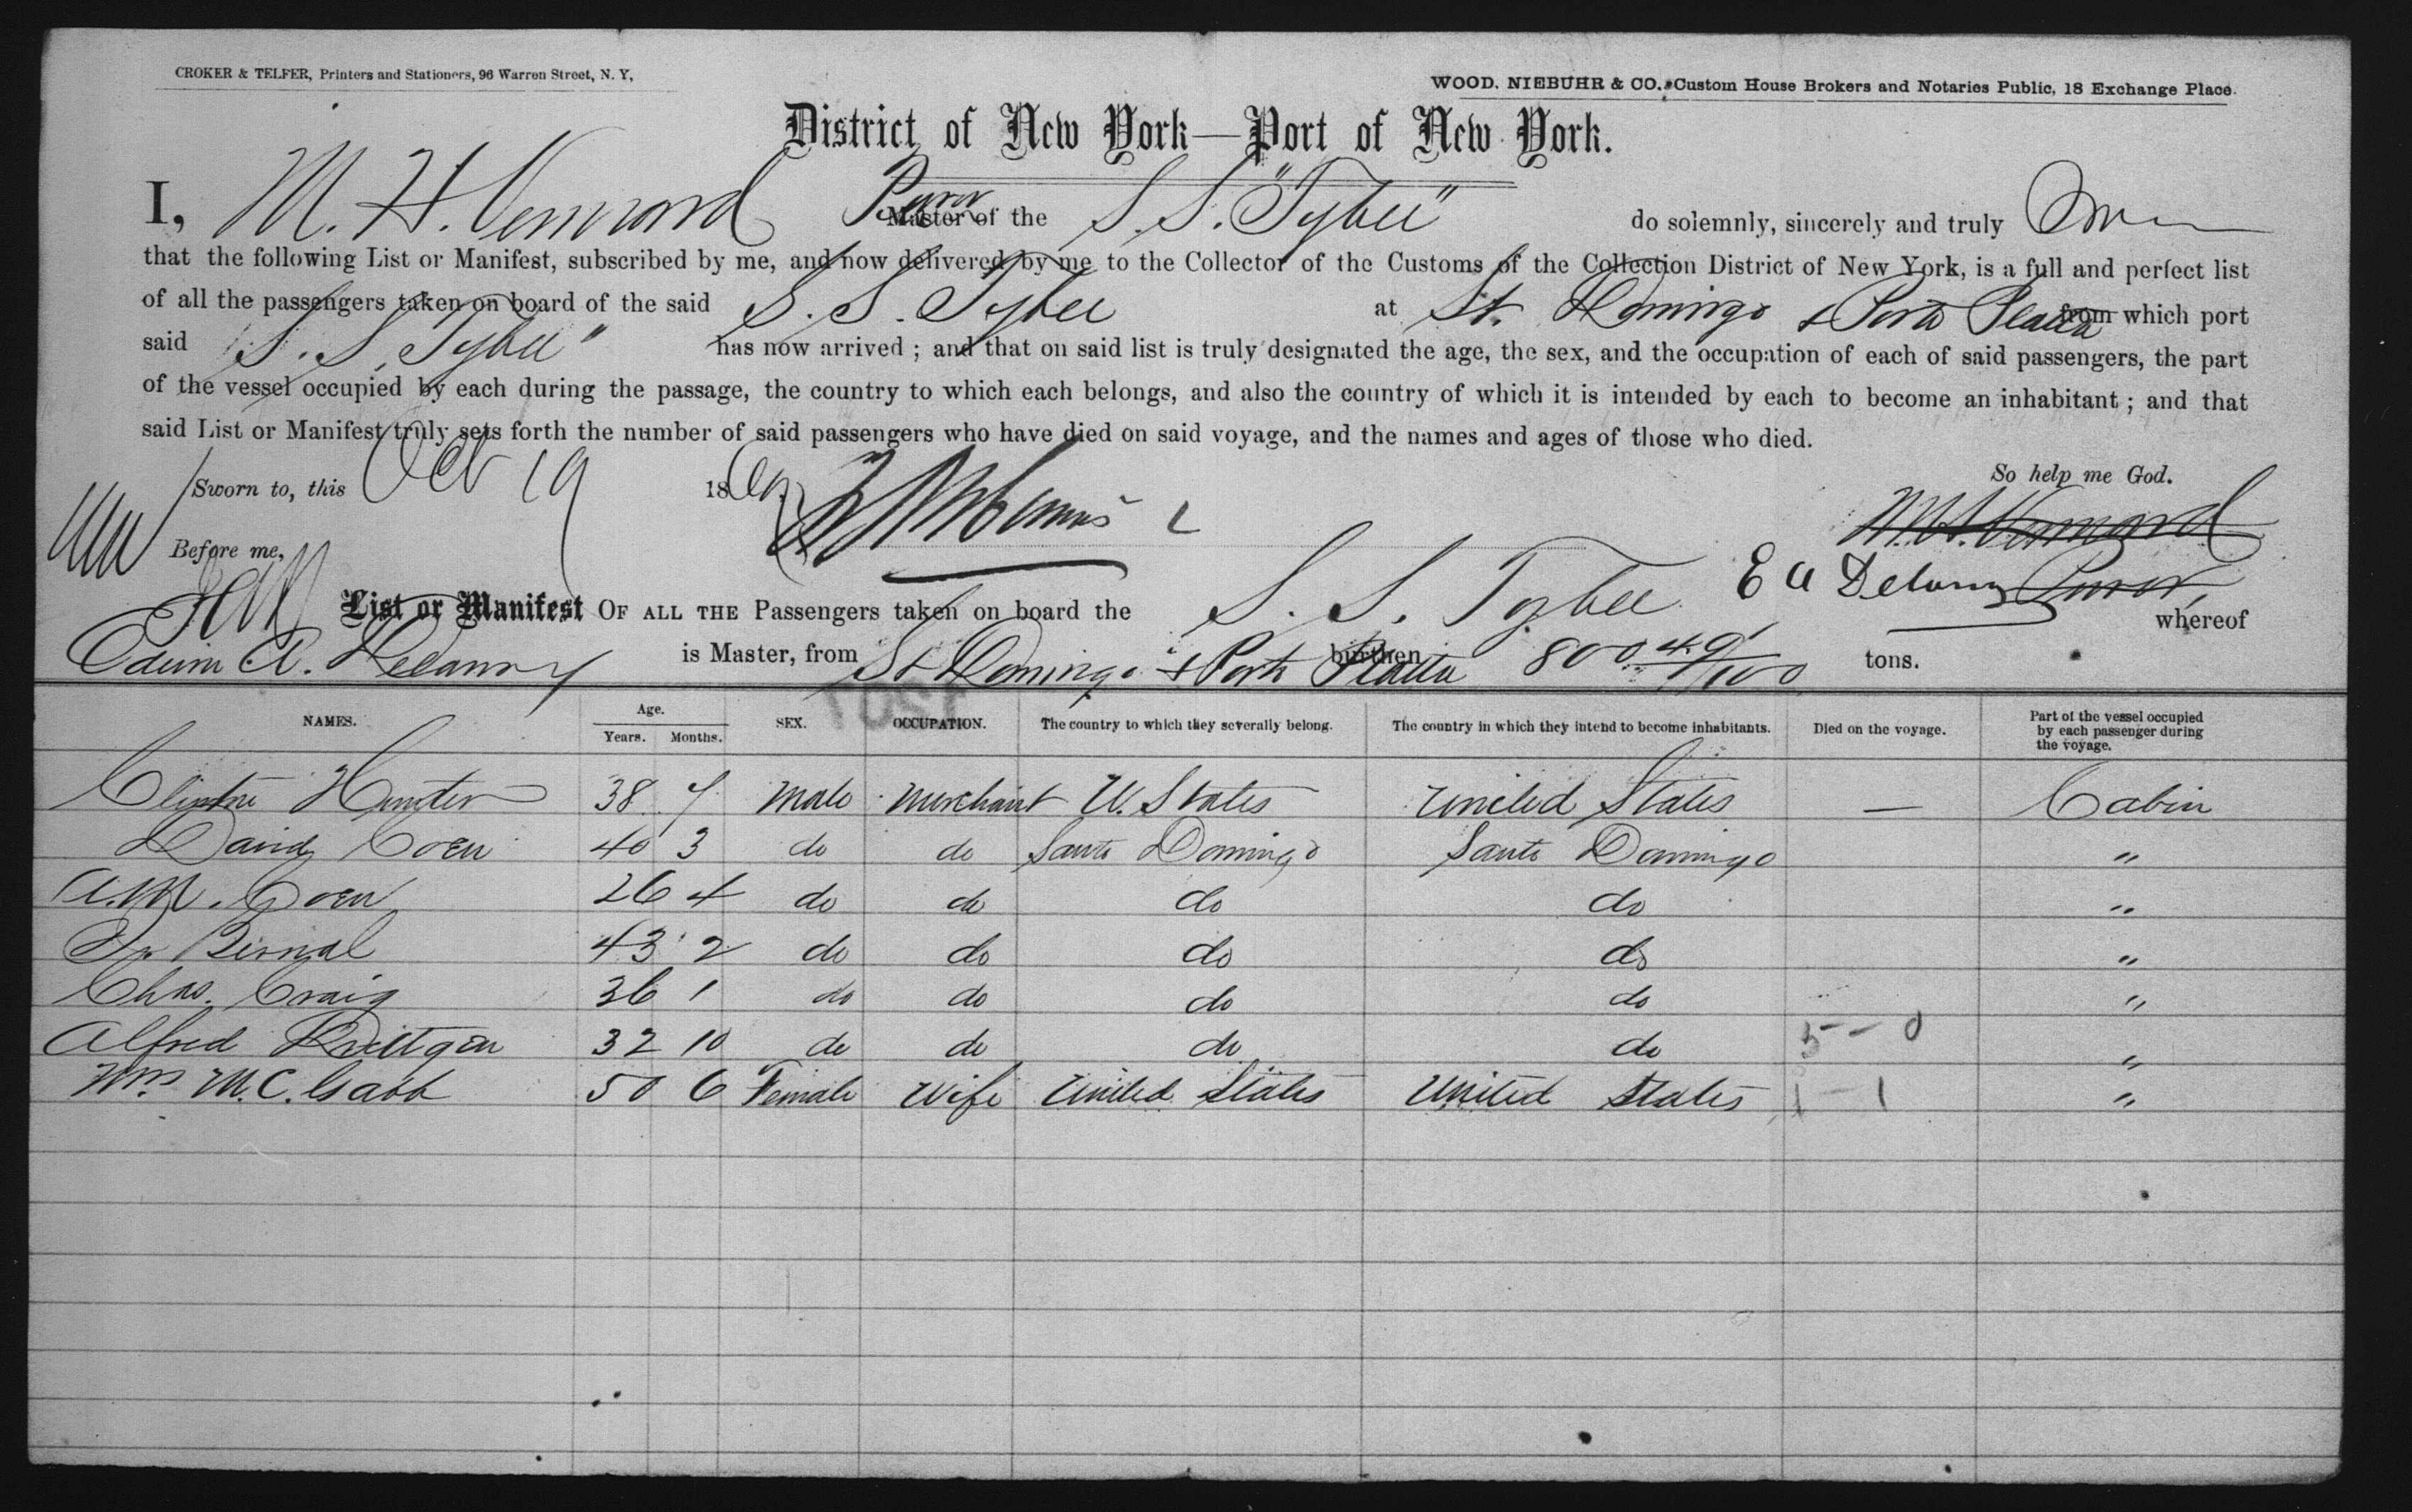 CROKER & TELFER, Printers and Stationers, 96 Warren Street, N. Y,
WOOD. NIEBUHR & CO. Custom House Brokers and Notaries Public, 18 Exchange Place.
District of New York—Port of New York.
I, M. H. Vennard Purser Master of the S. S. "Tybee" do solemnly, sincerely and truly Swear
that the following List or Manifest, subscribed by me, and now delivered by me to the Collector of the Customs of the Collection District of New York, is a full and perfect list
of all the passengers taken on board of the said S. S. Tybee at St. Domingo & Porto Platta from which port
said S. S. Tybee" has now arrived ; and that on said list is truly designated the age, the sex, and the occupation of each of said passengers, the part
of the vessel occupied by each during the passage, the country to which each belongs, and also the country of which it is intended by each to become an inhabitant ; and that
said List or Manifest truly sets forth the number of said passengers who have died on said voyage, and the names and ages of those who died.
So help me God.
Sworn to, this Oct 19 1869
M. H. Vennard
Before me,
E A Delany Purser
List or Manifest OF ALL THE Passengers taken on board the S. S. Tybee whereof
Edwin A. Delanny is Master, from St Domingo & Porto Platta burthen 800 49/100 tons.
NAMES. Age. Years. Months. SEX. OCCUPATION. The country to which they severally belong. The country in which they intend to become inhabitants. Died on the voyage. Part of the vessel occupied by each passenger during the voyage.
Hunter 38 7 Male Merchant U. States United States — Cabin
David Coen 40 3 do do Santo Domingo Santo Domingo "
A. M. Coen 26 4 do do do do "
Bernal 43 2 do do do do "
Chas. Craig 36 1 do do do do "
Alfred 32 10 do do do do 5 - 0 "
Mrs M. C. Gabb 50 6 Female Wife United States United States 1 - 1 "